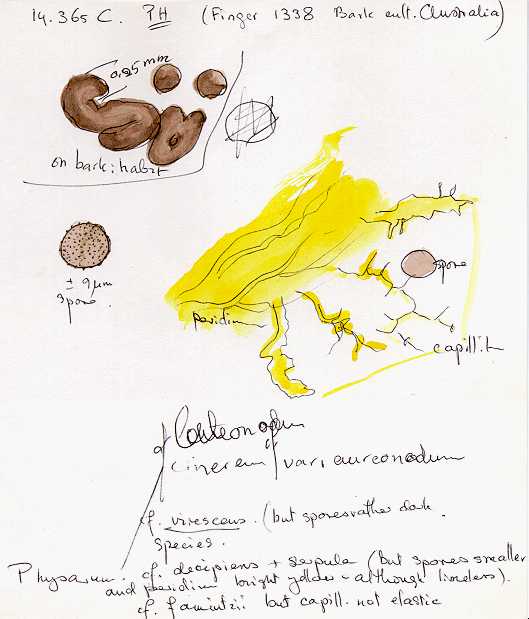 14.365 C. PH (Finger 1338 Bark cult. Australia)
0,25 mm
on bark: habit
± 9 µm
spore.
spore
peridium
capill.
cf
cf
cinereum var. aureonodum
cf. virescens. (but spores rather dark.
species.
Physarum. cf. decipiens + serpula (but spores smaller
and peridium bright yellow - although limeless).
cf. famintzii but capill. not elastic